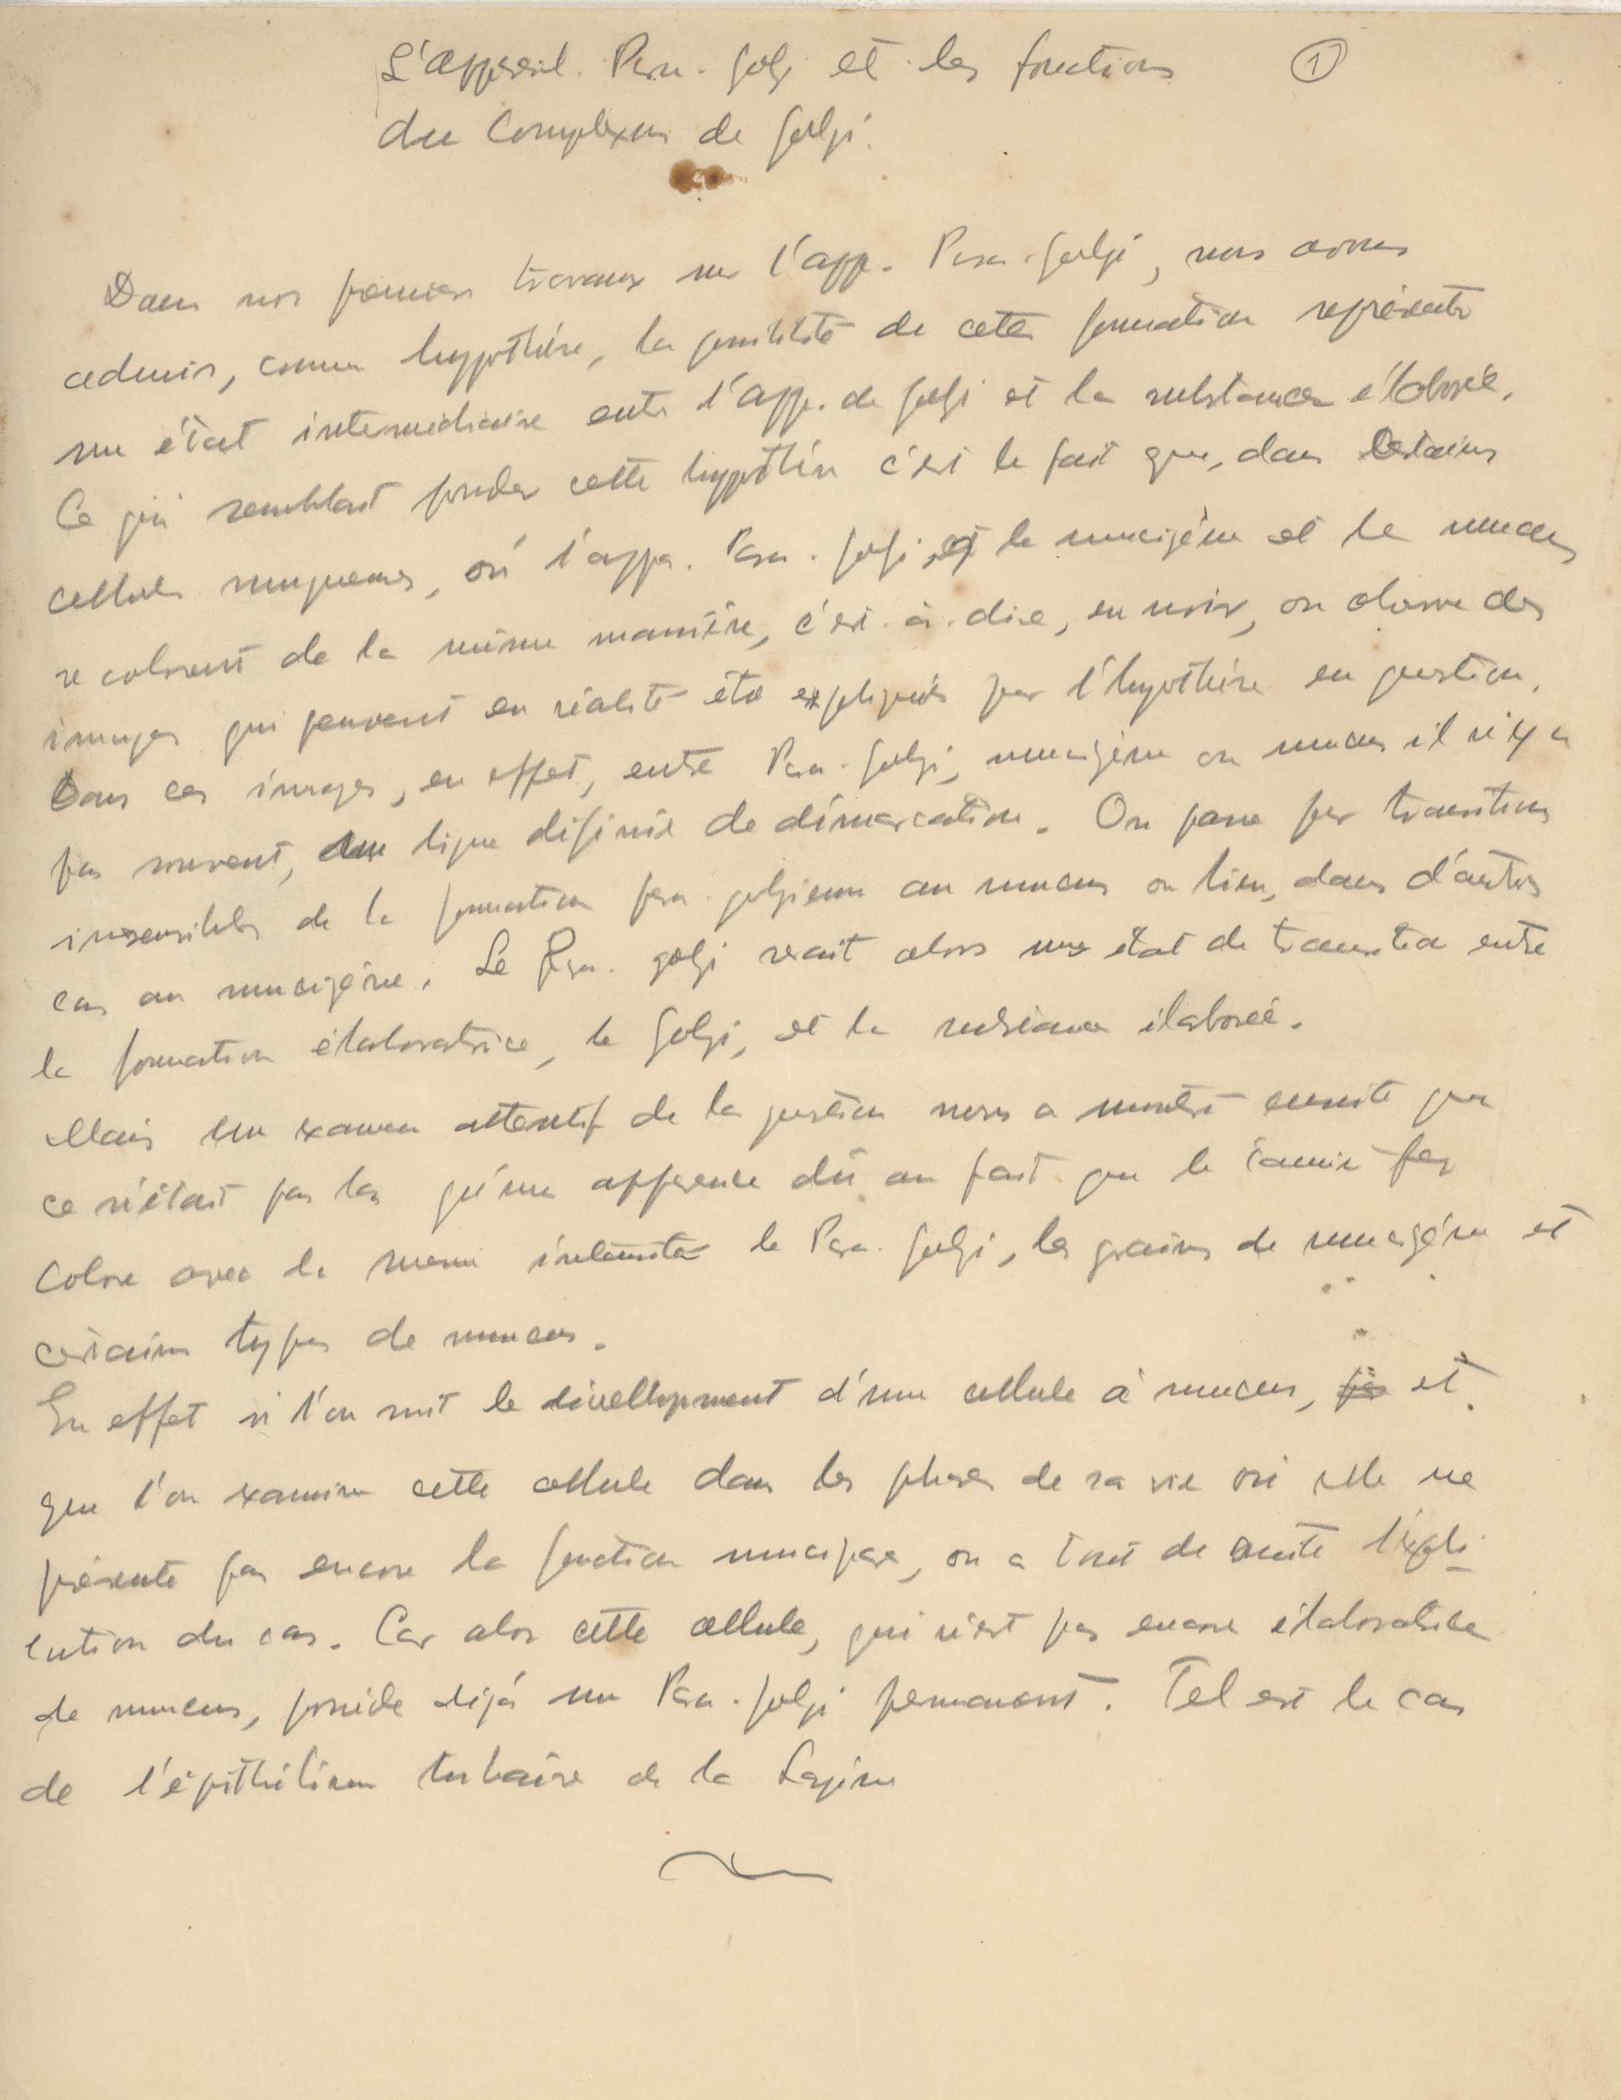 L'appareil Para-Golgi et les fonctions ①
du Complexus de Golgi.
Dans nos premiers travaux sur l'app. Para-Golgi, nous avons
admis, comme hypothèse, la possibilité de cette formation représenter
un état intermédiaire entre l'app. de Golgi et la substance élaborée.
Ce qui semblait fonder cette hypothèse c'est le fait que, dans certains
cellules muqueuses, où l'appa. Para-Golgi, et le mucigène et le mucus
se colorent de la même manière, c'est-à-dire, en noir, on observe des
images qui peuvent en réalité être expliqués par l'hypothèse en question.
Dans ces images, en effet, entre Para-Golgi, mucigène ou mucus il n'y a
pas souvent, une ligne définie de démarcation. On passe par transitions
insensibles de la formation para-golgienne au mucus ou bien, dans d'autres
cas au mucigène. Le Para-golgi serait alors un état de transition entre
la formation élaboratrice, le Golgi, et la substance élaborée.
Mais un examen attentif de la question nous a montré ensuite que
ce n'était pas là qu'une apparence dû au fait que le tannin-fer
colore avec la même intensité le Para-Golgi, les grains de mucigène et
certains types de mucus.
En effet si l'on suit le dévellopment d'une cellule à mucus, et
que l'on examine cette cellule dans les phases de sa vie où elle ne
présente pas encore la fonction mucipare, on a tout de suite l'expli-
cution du cas. Car alors cette cellule, qui n'est pas encore élaboratrice
de mucus, possède déjà un Para-Golgi permanent. Tel est le cas
de l'épithélium tubaire de la Lapine